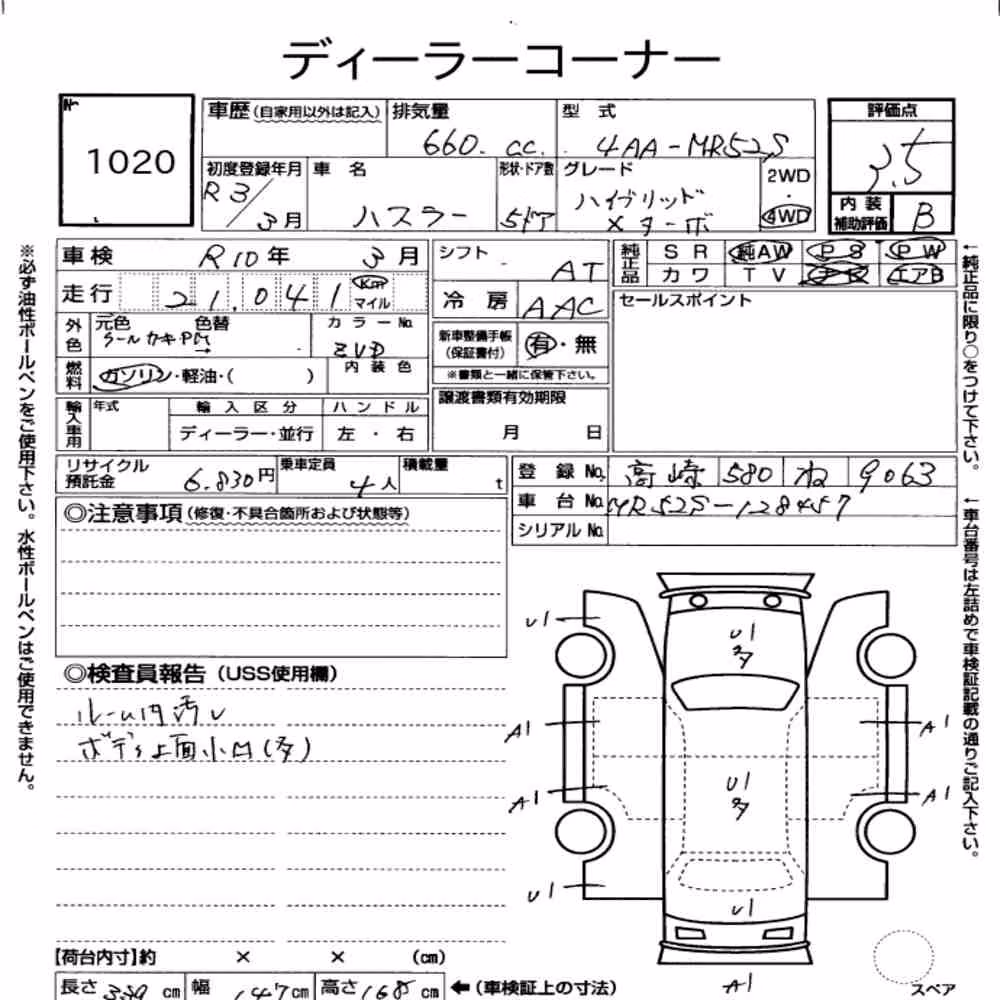 ディーラーコーナー
No.
1020
車歴(自家用以外は記入)
排気量
660. cc.
型 式
4AA-MR52S
評価点
3.5
初度登録年月
R3/3月
車 名
ハスラー
形状・ドア数
5ドア
グレード
ハイブリッド
Xターボ
2WD
・
4WD
内 装
補助評価
B
車検 R10年 3月
走行 21.041 Km
マイル
シフト AT
冷 房 AAC
純正品
S R 純AW P S P W
カワ T V ナビ エアB
外色
元色 色替
クールカキPM
→
カラーNo.
ZVD
燃料
ガソリン・軽油・( )
内 装 色
新車整備手帳
(保証書付)
有・無
※書類と一緒に保管下さい。
セールスポイント
輸入車用
年式
輸 入 区 分
ディーラー・並行
ハ ン ド ル
左 ・ 右
譲渡書類有効期限
月 日
リサイクル
預託金
6.830円
乗車定員
4人
積載量
t
登 録 No. 高崎 580 ね 9063
車 台 No. MR52S-128457
シリアル No.
◎注意事項(修復・不具合箇所および状態等)
◎検査員報告(USS使用欄)
ルーム内汚レ
ボデー上面小凹(多)
U1
U1
多
A1
A1
U1
多
A1
A1
U1
U1
A1
スペア
【荷台内寸】約 × × (cm)
長さ 339 cm 幅 147 cm 高さ 168 cm ←(車検証上の寸法)
※必ず油性ボールペンをご使用下さい。水性ボールペンはご使用できません。
←純正品に限り○をつけて下さい。
←車台番号は左詰めで車検証記載の通りご記入下さい。